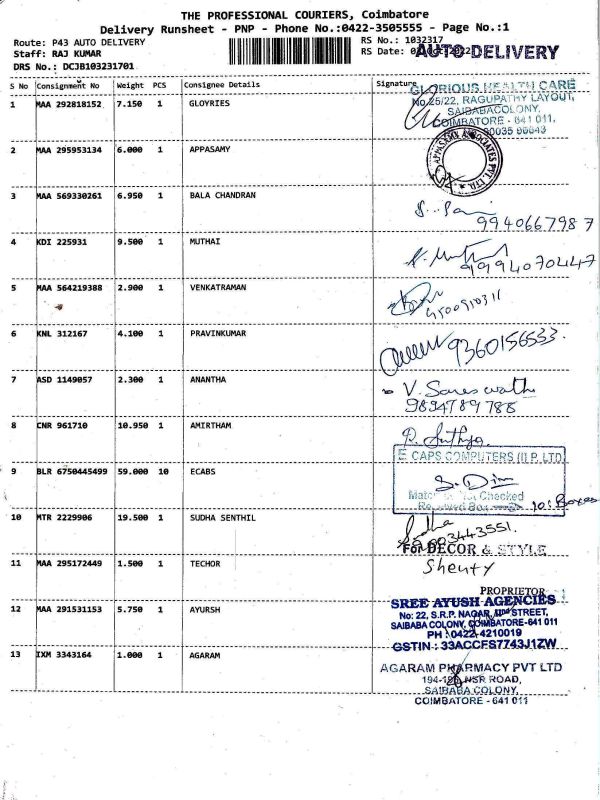 THE PROFESSIONAL COURIERS, Coimbatore
Delivery Runsheet - PNP - Phone No.:0422-3505555 - Page No.:1
Route: P43 AUTO DELIVERY
Staff: RAJ KUMAR
DRS No.: DCJB103231701
RS No.: 1032317
RS Date:
AUTO DELIVERY
S No Consignment No Weight PCS Consignee Details Signature
1 MAA 292818152 7.150 1 GLOYRIES
GLORIOUS HEALTH CARE
No.25/22, RAGUPATHY LAYOUT,
SAIBABACOLONY,
COIMBATORE - 641 011.
2 MAA 295953134 6.000 1 APPASAMY
APPASAMY ASSOCIATES PVT. LTD.
3 MAA 569330261 6.950 1 BALA CHANDRAN
9940667987
4 KDI 225931 9.500 1 MUTHAI
5 MAA 564219388 2.900 1 VENKATRAMAN
6 KNL 312167 4.100 1 PRAVINKUMAR
9360156533.
7 ASD 1149057 2.300 1 ANANTHA
V. Sareswathi
9894789788
8 CNR 961710 10.950 1 AMIRTHAM
9 BLR 6750445499 59.000 10 ECABS
E CAPS COMPUTERS (I) P. LTD
Not Checked
Received Box
10: Boxes
10 MTR 2229906 19.500 1 SUDHA SENTHIL
Sudha
11 MAA 295172449 1.500 1 TECHOR
For DECOR & STYLE
Shenty
PROPRIETOR
12 MAA 291531153 5.750 1 AYURSH
SREE AYUSH AGENCIES
No: 22, S.R.P. NAGAR, IInd STREET,
SAIBABA COLONY, COIMBATORE-641 011
PH : 0422-4210019
GSTIN : 33ACCFS7743J1ZW
13 IXM 3343164 1.000 1 AGARAM
AGARAM PHARMACY PVT LTD
NSR ROAD,
SAIBABA COLONY,
COIMBATORE - 641 011